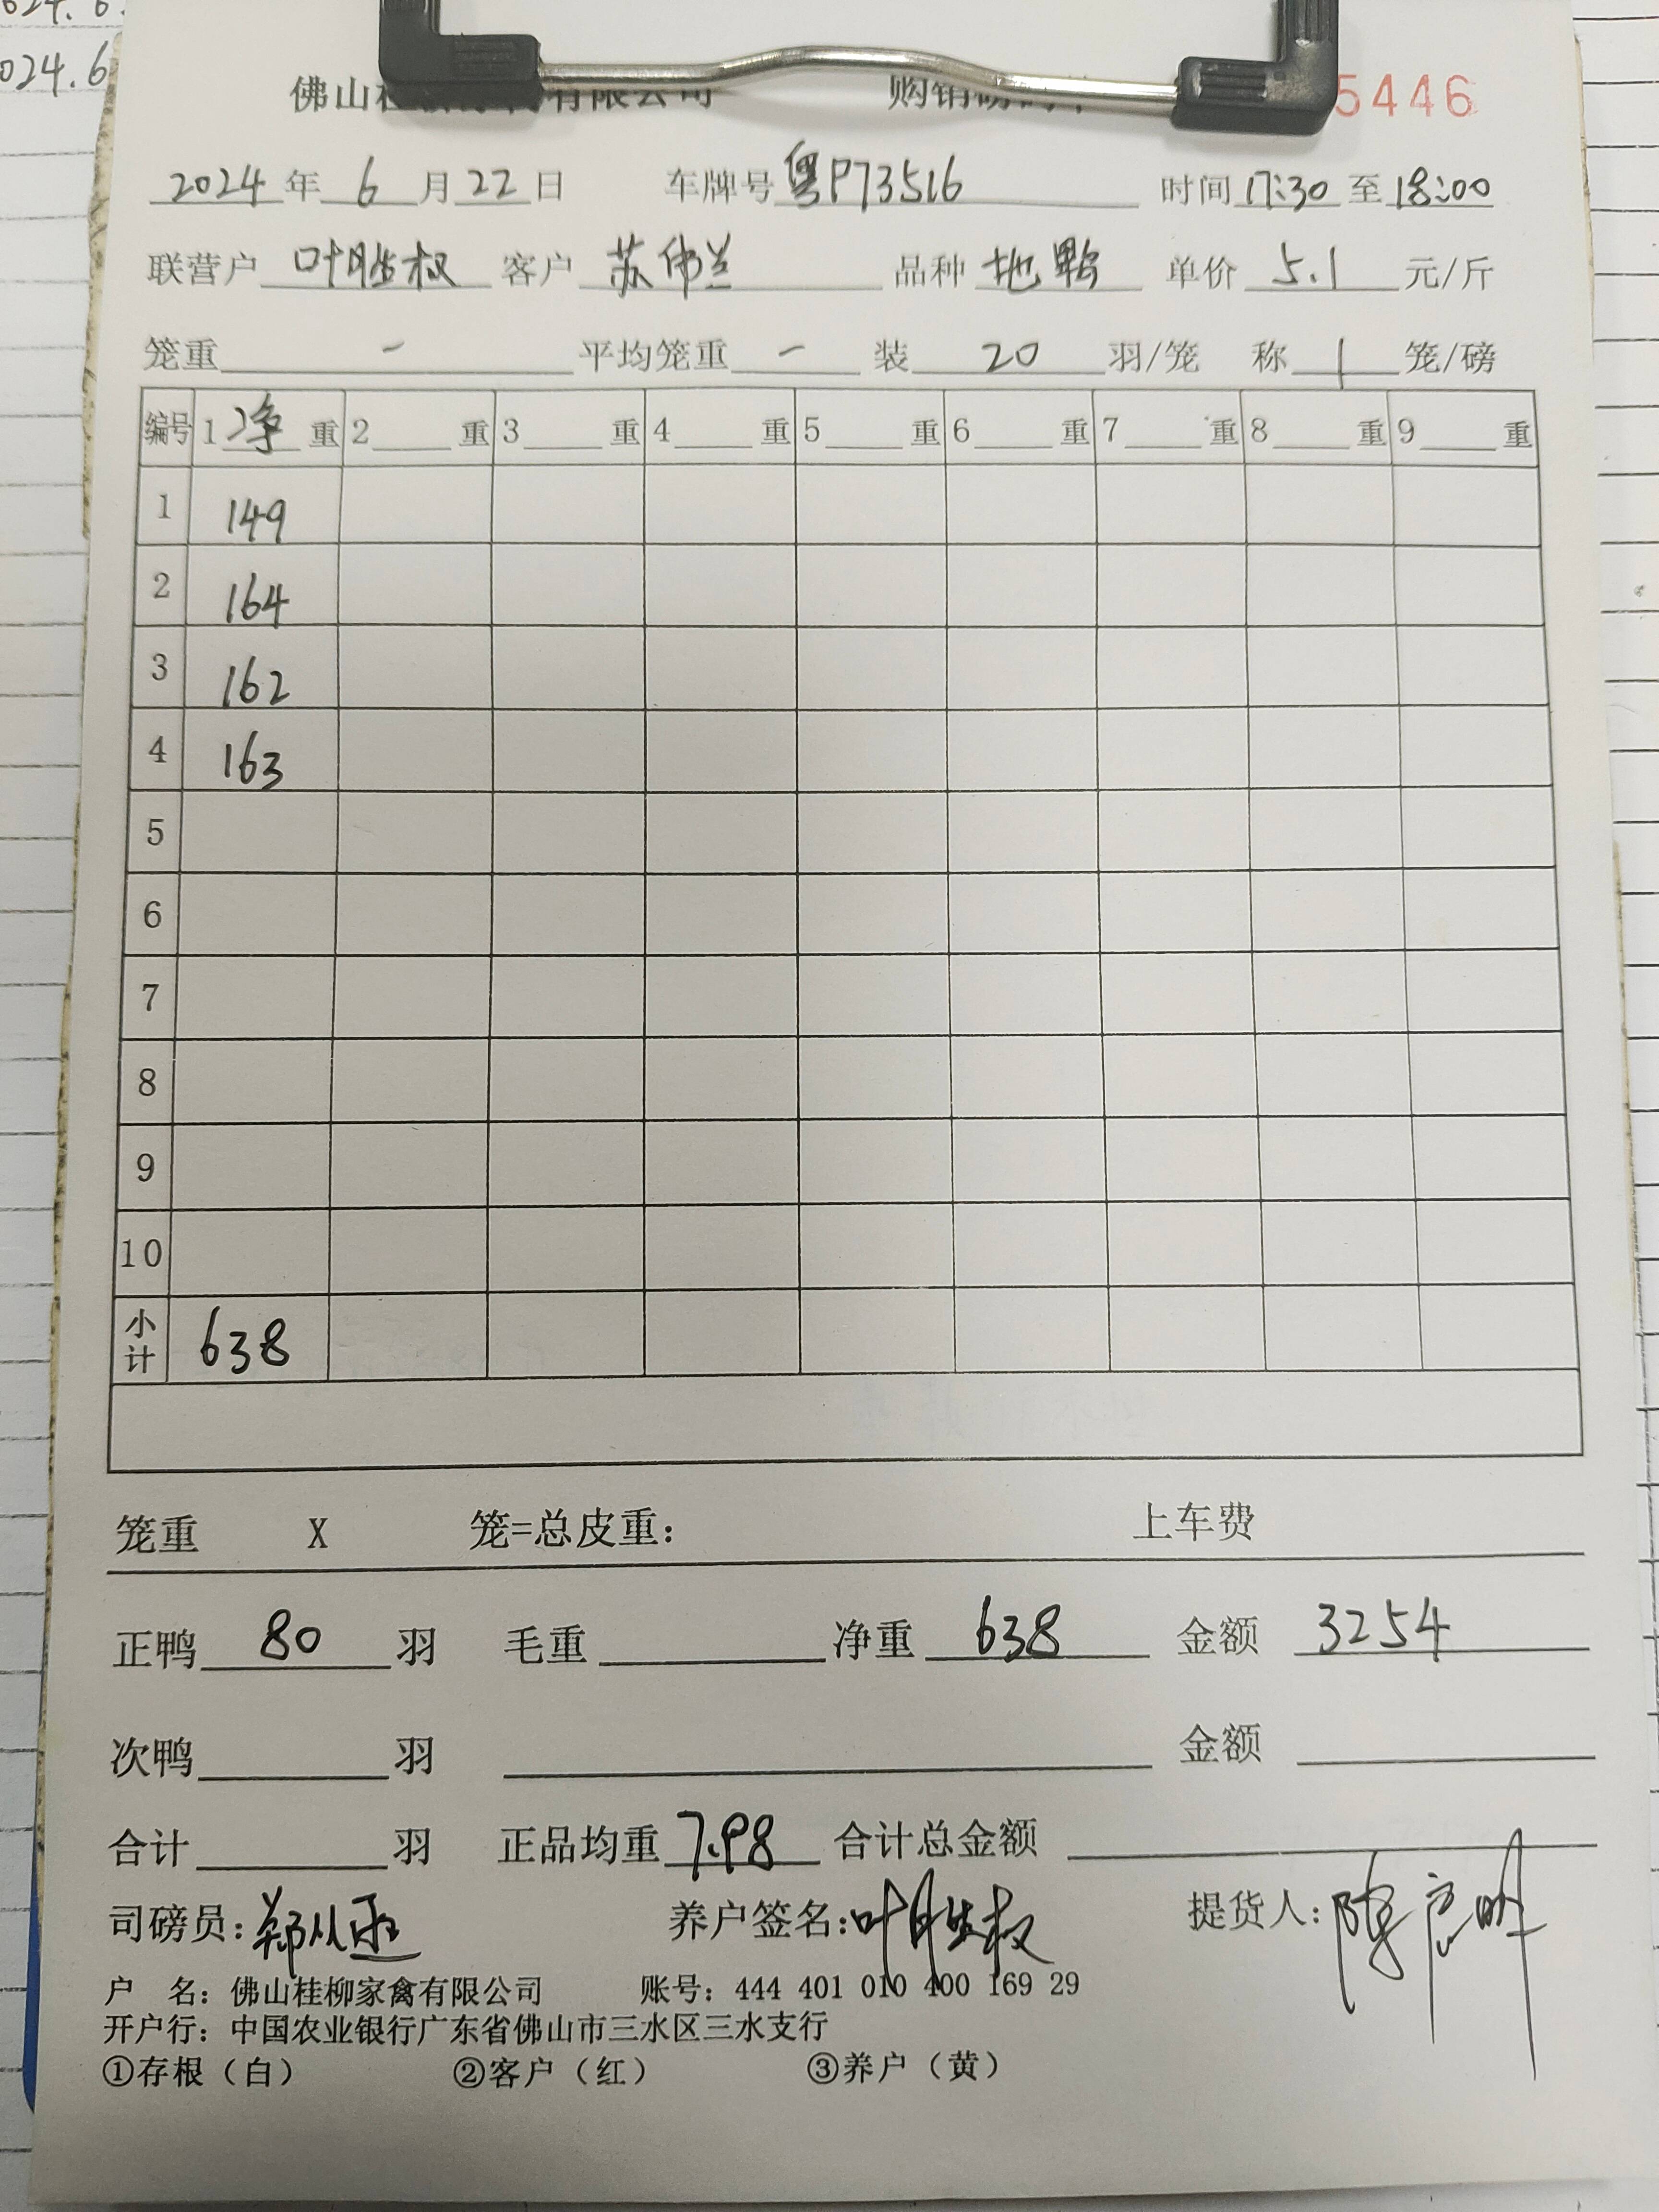 024.6
佛山桂 有限公司 购销 5446
2024年 6 月 22 日 车牌号 粤P73516 时间 17:30 至 18:00
联营户 叶胜权 客户 苏伟兰 品种 单价 5.1 元/斤
笼重 - 平均笼重 - 装 20 羽/笼 称 1 笼/磅
编号 1 净 重 2 重 3 重 4 重 5 重 6 重 7 重 8 重 9 重
1 149
2 164
3 162
4 163
5
6
7
8
9
10
小计 638
笼重 X 笼=总皮重: 上车费
正鸭 80 羽 毛重 净重 638 金额 3254
次鸭 羽 金额
合计 羽 正品均重 7.98 合计总金额
司磅员: 养户签名:叶胜权 提货人:
户 名: 佛山桂柳家禽有限公司 账号: 444 401 010 400 169 29
开户行: 中国农业银行广东省佛山市三水区三水支行
①存根(白) ②客户(红) ③养户(黄)